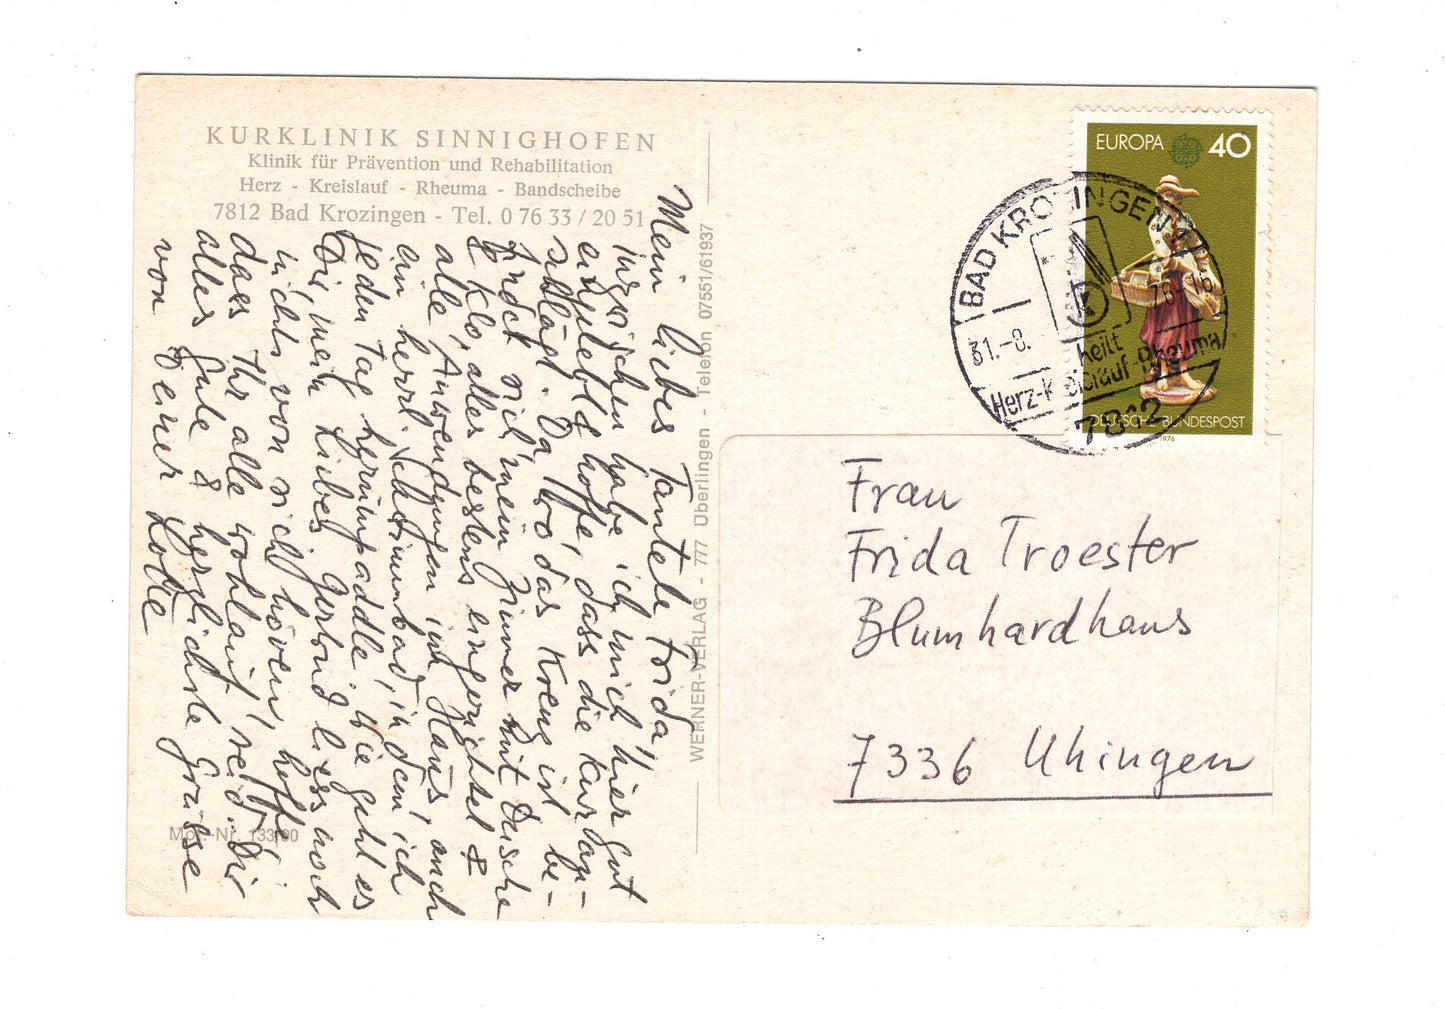 KURKLINIK SINNIGHOFEN
Klinik für Prävention und Rehabilitation
Herz - Kreislauf - Rheuma - Bandscheibe
7812 Bad Krozingen - Tel. 0 76 33 / 20 51
Mein liebes Tantele Frida,
inzwischen habe ich mich hier gut
eingelebt & hoffe, dass die Kur an-
schlägt. Da, wo das Kreuz ist be-
findet sich mein Zimmer mit Dusche
& Klo, alles bestens eingerichtet &
alle Anwendungen im Haus, auch
ein herrl. Schwimmbad, in dem ich
jeden Tag herumpaddle. Wie geht es
Dir, mein Liebes? Gertrud liess noch
nichts von sich hören, hoffe
dass Ihr alle wohlauf seid. Dir
alles Gute & herzlichste Grüsse
von Deiner Lotte
Mot.-Nr. 133/90
WERNER-VERLAG - 777 Überlingen - Telefon 07551/61937
EUROPA 40
DEUTSCHE BUNDESPOST
1976
BAD KROZINGEN
31.-8.
heilt
Herz-Kreislauf-Rheuma
7812
Frau
Frida Troester
Blumhardhaus
7336 Uhingen